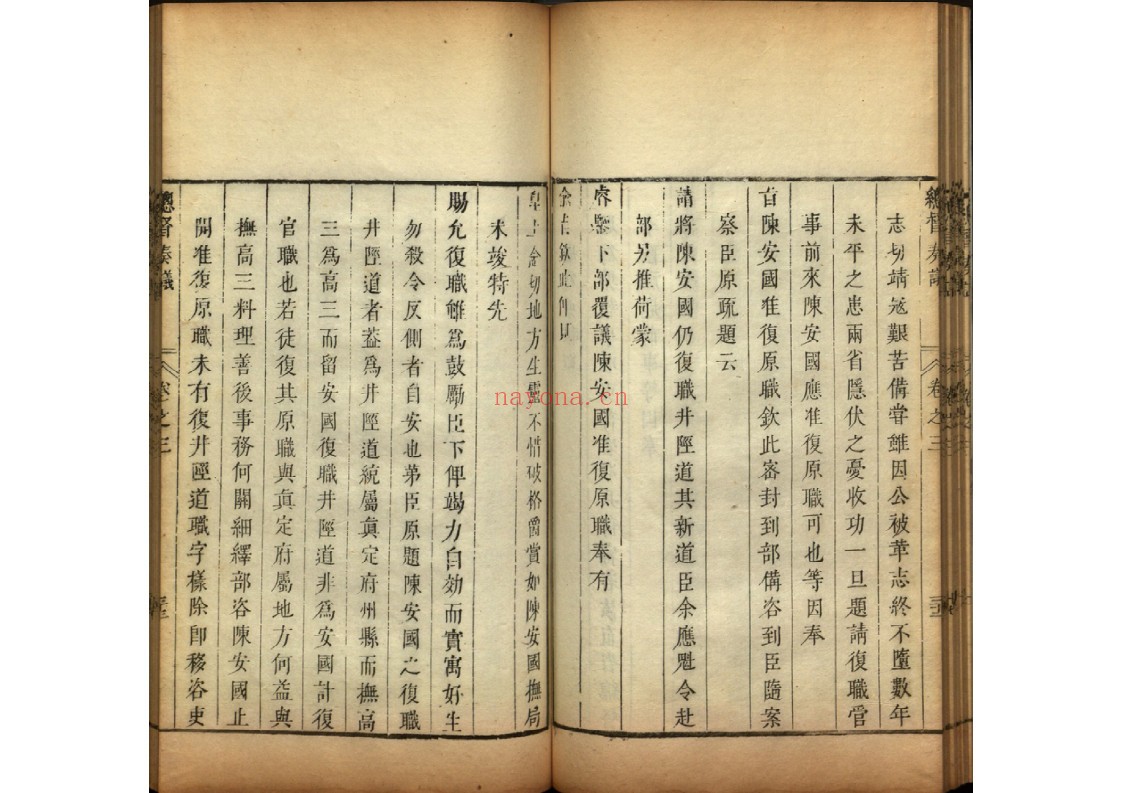 總督奏議
卷之三
志切靖冦艱苦備嘗雖因公被革志終不墮數年
未平之患兩省隱伏之憂收功一旦題請復職管
事前來陳安國應准復原職可也等因奉
旨陳安國准復原職欽此密封到部備咨到臣隨案
察臣原疏題云
請將陳安國仍復職井陘道其新道臣余應魁令赴
部另推荷蒙
睿鑒下部覆議陳安國准復原職奉有
俞旨欽此仰見
皇上念切地方生靈不惜破格爵賞如陳安國撫局
未竣特先
賜允復職雖為鼓勵臣下俾竭力自効而實寓好生
勿殺令反側者自安也苐臣原題陳安國之復職
井陘道者葢為井陘道統屬眞定府州縣而撫高
三為高三而留安國復職井陘道非為安國計復
官職也若徒復其原職與眞定府屬地方何益與
撫高三料理善後事務何關細繹部咨陳安國止
開准復原職未有復井陘道職字樣除即移咨吏
總督奏議
卷之三
nayona.cn